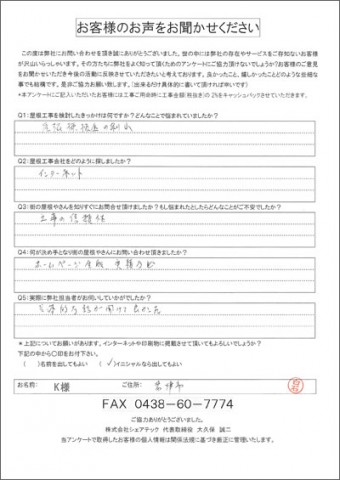 お客様のお声をお聞かせください
この度は弊社にお問い合わせを頂き誠にありがとうございました。世の中には弊社の存在やサービスをご存知ないお客様
が沢山いらっしゃいます。その方たちに弊社をよく知って頂くためのアンケートにご協力頂けないでしょうか?お客様のご意見
をお聞かせいただき今後の活動に反映させていただきたいと考えております。良かったこと、嬉しかったことどのような些細な
事でも結構です。是非ご協力お願いします。(出来るだけ具体的に書いて頂ければ幸いです)
*本アンケートにご記入いただいたお客様には工事ご用命時に工事金額(税抜き)の 2%をキャッシュバックさせていただきます。
Q1:屋根工事を検討したきっかけは何ですか?どんなことで悩まれていましたか?
Q2:屋根工事会社をどのように探しましたか?
インターネット
Q3:街の屋根やさんを知りすぐにお問合せ頂けましたか?もし悩まれたとしたらどんなことがご不安でしたか?
工事の信頼性
Q4:何が決め手となり街の屋根やさんにお問い合わせ頂きましたか?
ホームページ
Q5:実際に弊社担当者がお伺いしていかがでしたか?
*上記についてお願いがあります。インターネットや印刷物に掲載させて頂いてもよろしいでしょうか?
下記の中から〇印をお付け下さい。
( )名前を出してもよい (✓)イニシャルなら出してもよい
お名前: K様 ご住所:
FAX 0438-60-7774
ご協力ありがとうございました。
株式会社シェアテック 代表取締役 大久保 誠二
当アンケートで取得したお客様の個人情報は関係法規に基づき厳正に管理いたします。